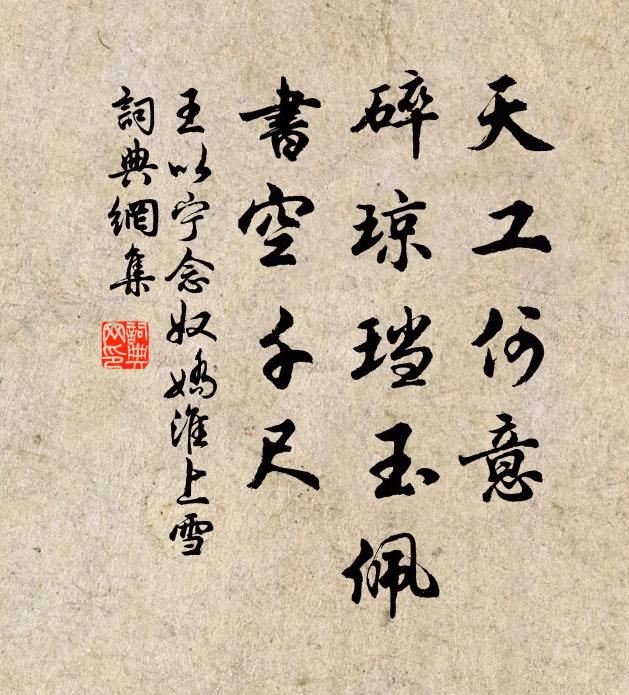 天工何意
碎琼珰玉佩
書空千尺
王以宁念奴嬌淮上雪
詞典網集
詞典網印